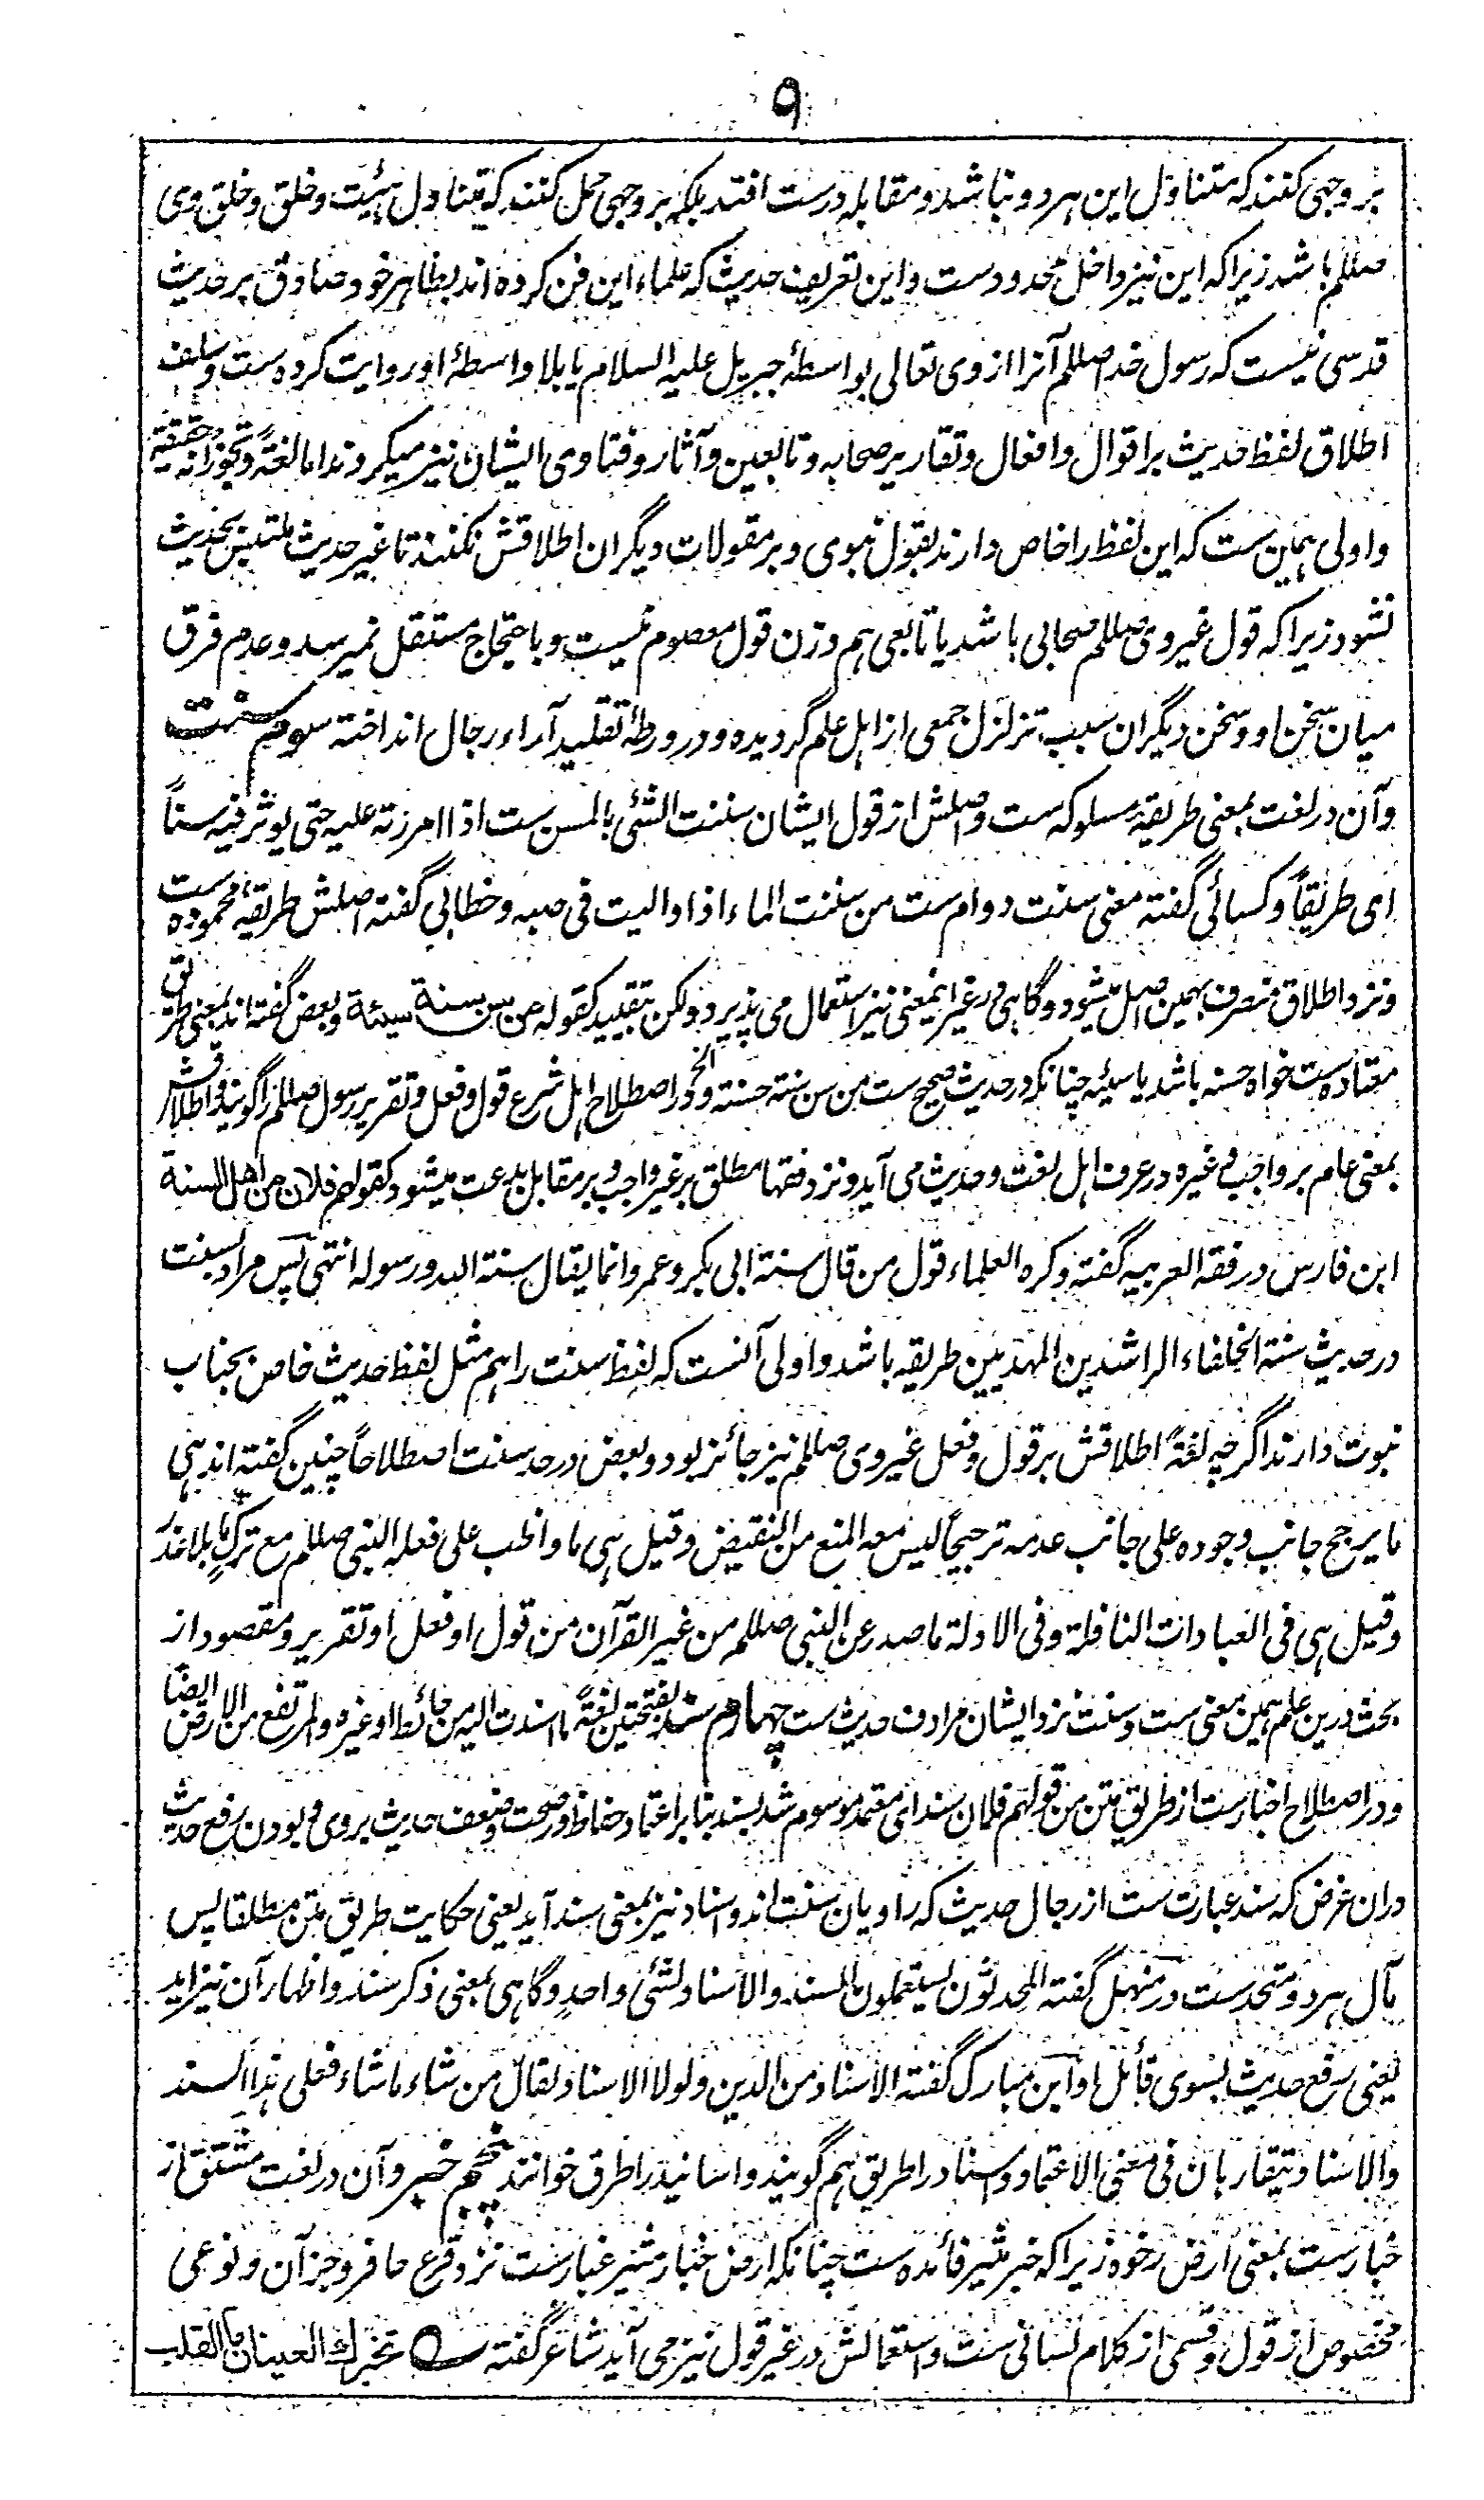 ۹
بر وجهی کنند که متناول این هر دو نباشد و مقابله درست افتد بلکه بر وجهی حمل کنند که متناول هیئت و خلق و خلق وی
صللم باشد زیرا که این نیز داخل محدودست و این تعریف حدیث که علماء این فن کرده اند بظاهر خود صادق بر حدیث
قدسی نیست که رسول خدا صللم آنرا از وی تعالی بواسطهٔ جبریل علیه السلام یا بلا واسطهٔ او روایت کرده ست و سلف
اطلاق لفظ حدیث بر اقوال و افعال و تقاریر صحابه و تابعین و آثار و فتاوی ایشان نیز میکردند اما لغةً و تجوزا نه حقیقة
و اولی همین ست که این لفظ را خاص دارند بقول نبوی و بر مقولات دیگران اطلاقش نکنند تا غیر حدیث ملتبس بحدیث
نشود زیرا که قول غیر وی صللم صحابی باشد یا تابعی هم وزن قول معصوم نیست و باحتجاج مستقل نمیرسد و عدم فرق
میان سخن او و سخن دیگران سبب تزلزل جمعی از اهل علم گردیده و در ورطهٔ تقلید آراء رجال انداخته سوم سنت
و آن در لغت بمعنی طریقهٔ مسلوکه ست و اصلش از قول ایشان سننت الشئ بالمسن ست اذا امررته علیه حتی یوثر فیه سناً
ای طریقاً و کسائی گفته معنی سنت دوام ست من سننت الماء اذا والیت فی صبه و خطابی گفته اصلش طریقهٔ محموده ست
و نزد اطلاق منصرف بهمین اصل میشود و گاهی در غیر اینمعنی نیز استعمال می پذیرد ولکن بتقیید کقوله من سن سنة سیئة و بعض گفته اند بمعنی طریق
معتاده ست خواه حسنه باشد یا سیئه چنانکه در حدیث صحیح ست من سن سنته حسنة الخ و در اصطلاح اهل شرع قول و فعل و تقریر رسول صللم را گویند و اطلاقش
بمعنی عام بر واجب و غیره در عرف اهل لغت و حدیث می آید و نزد فقها مطلق بر غیر واجب و بر مقابل بدعت میشود کقولهم فلان من اهل السنة
ابن فارس در فقه العربیه گفته و کره العلماء قول من قال سنة ابی بکر و عمر و انما یقال سنة الله و رسوله انتهی پس مراد بسنت
در حدیث سنة الخلفاء الراشدین المهدیین طریقه باشد و اولی آنست که لفظ سنت را هم مثل لفظ حدیث خاص بجناب
نبوت دارند اگرچه لغةً اطلاقش بر قول و فعل غیر وی صللم نیز جائز بود و بعض در حد سنت اصطلاحاً چنین گفته اند هی
ما یرجح جانب وجوده علی جانب عدمه ترجیحاً لیس معه المنع من النقیض و قیل هی ما واظب علی فعله النبی صللم مع ترکٍ ما بلا عذر
و قیل هی فی العبادات النافلة و فی الادلة ما صدر عن النبی صللم من غیر القرآن من قول او فعل او تقریر و مقصود از
بحث درین علم همین معنی ست و سنت نزد ایشان مرادف حدیث ست چهارم سند بفتحتین لغةً ما اسندت الیه من حائط او غیره و المرتفع من الارض ایضاً
و در اصطلاح اخبارست از طریق متن من قولهم فلان سند ای معتمد موسوم شد بسند بنا بر اعتماد حفاظ در صحت و ضعف حدیث بر وی و بودن رفع حدیث
دران غرض که سند عبارت ست از رجال حدیث که راویان سنت اند و اسناد نیز بمعنی سند آید یعنی حکایت طریق متن مطلقا پس
مآل هر دو متحدست در منهل گفته المحدثون یستعملون المسند والاسناد لشئ واحدٍ و گاهی بمعنی ذکر سند و اظهار آن نیز آید
یعنی رفع حدیث بسوی قائل او ابن مبارک گفته الاسناد من الدین و لولا الاسناد لقال من شاء ما شاء فعلی هذا السند
والاسناد یتقاربان فی معنی الاعتماد و اسناد را طریق هم گویند و اسانید را طرق خوانند پنجم خبر و آن در لغت مشتق از
خبارست بمعنی ارض رخوه زیرا که خبر مثیر فائده ست چنانکه ارض خبار مثیر غبارست نزد قرع حافر و جز آن و نوعی
مخصوص از قول و قسمی از کلام لسانی ست و استعمالش در غیر قول نیز می آید شاعر گفته ؎ تخبرك العینان ما القلب